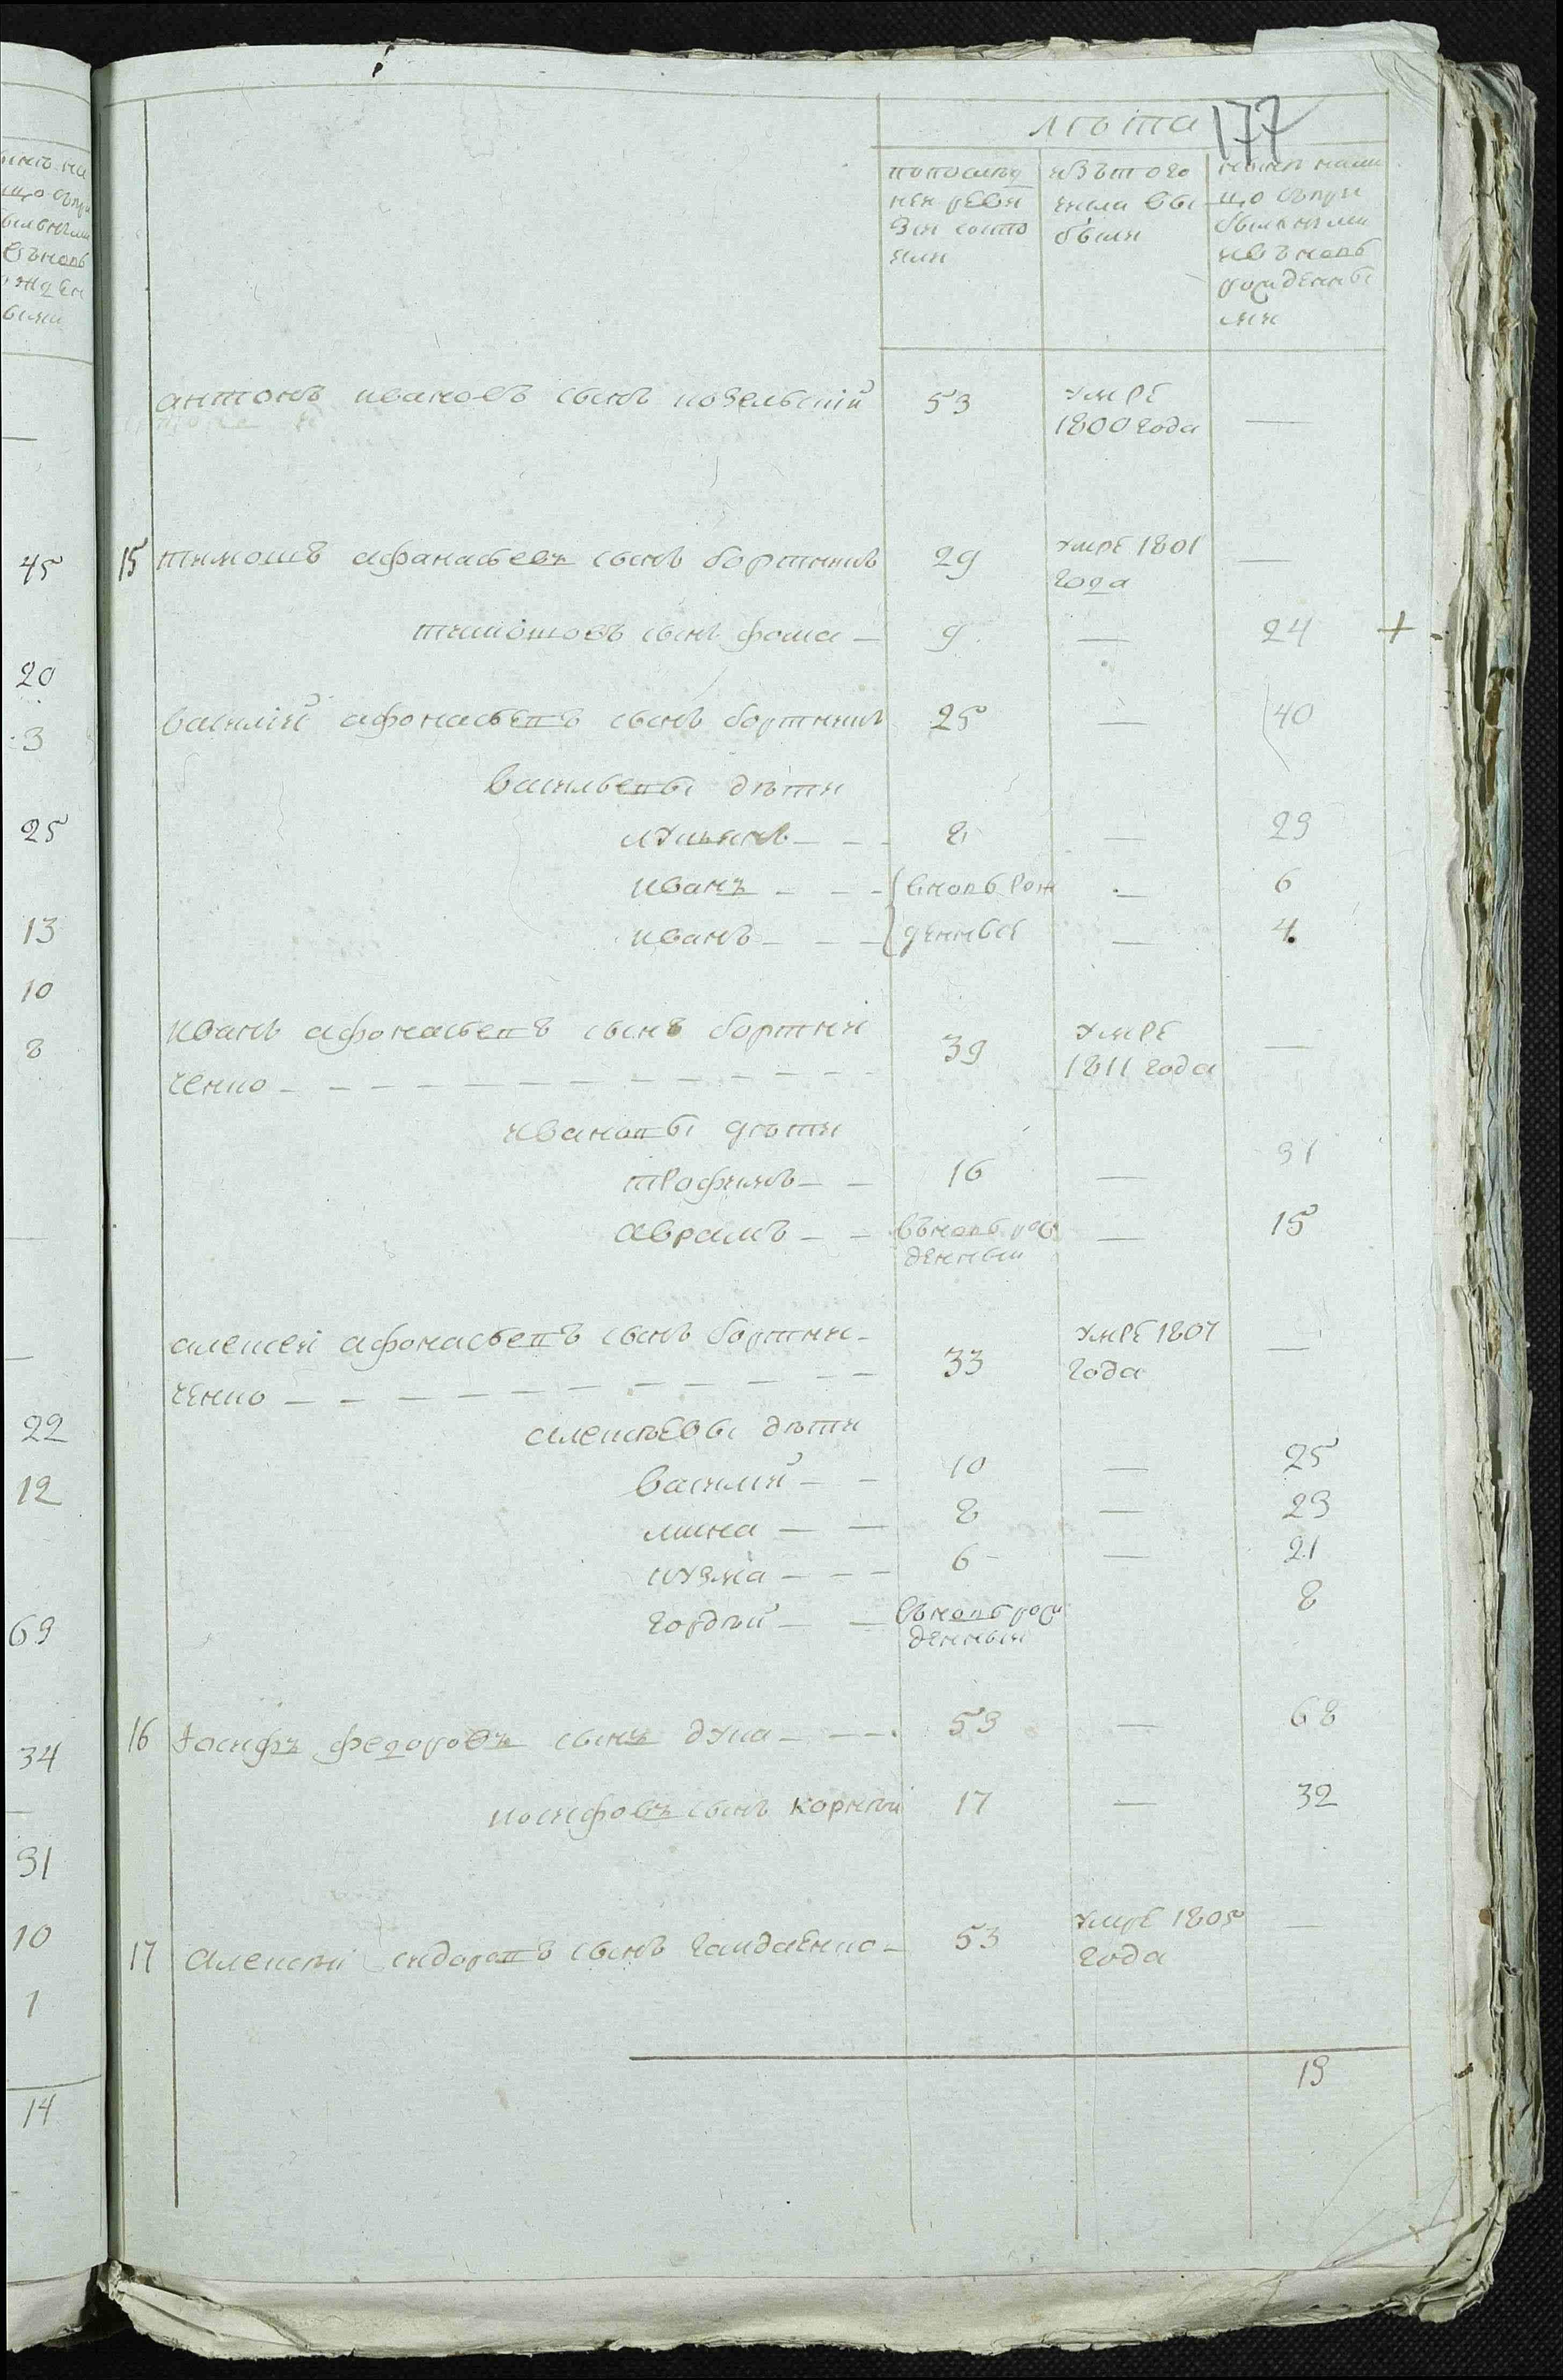 177
лѣта
попослѣд
ней реви
зіи состо
яли
изътого
числа вы
были
нынѣ нали
цо съпри
былыми
ивъновь
рожденны
ми
антонъ ивановъ сынъ козельскій 53 умре
1800 года —
15 тимошъ афанасьевъ сынъ бортникъ 29 умре 1801
года —
тимошовъ сынъ фома — 9 — 24 +
василій афонасьевъ сынъ бортникъ 25 — 40
васильевы дѣти
лукьянъ — — — 8 — 23
иванъ — — — вновь рож — 6
иванъ — — — денные — 4
иванъ афонасьевъ сынъ бортни
ченко — 39 умре
1811 года —
ивановы дѣти
трофимъ — — 16 — 31
аврамъ — — въновь рож
денный — 15
алексей афонасьевъ сынъ бортни-
ченко — 33 умре 1807
года —
алексѣевы дѣти
василій — — 10 — 25
мина — — 8 — 23
кузма — — — 6 — 21
гордѣй — — въновь рож
денный 8
16 Іосифъ федоровъ сынъ дука — — 53 — 68
иосифовъ сынъ корнѣй 17 — 32
17 алексѣй сидоровъ сынъ гайдаенко — 53 умре 1805
года —
19
45
20
3
25
13
10
8
22
12
69
34
31
10
1
14